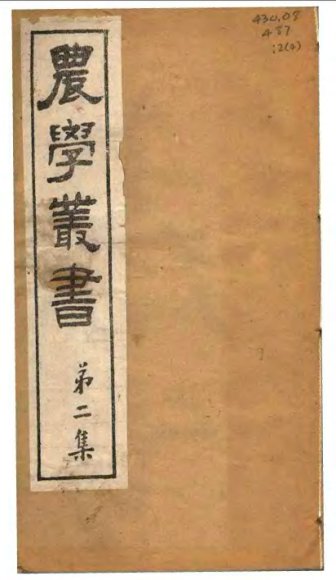 農學叢書
第二集
430.08
487
:2(4)